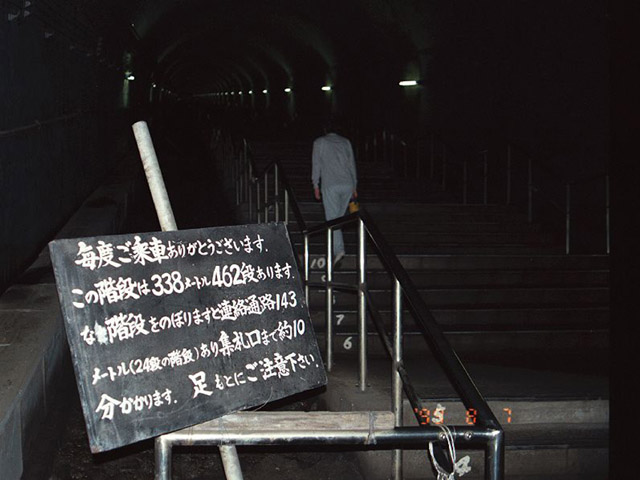 毎度ご乗車ありがとうございます.
この階段は338メートル462段あります.
なお階段をのぼりますと連絡通路143
メートル(24段の階段)あり集札口まで約10
分かかります. 足もとにご注意下さい.
10
7
6
'95 8 7